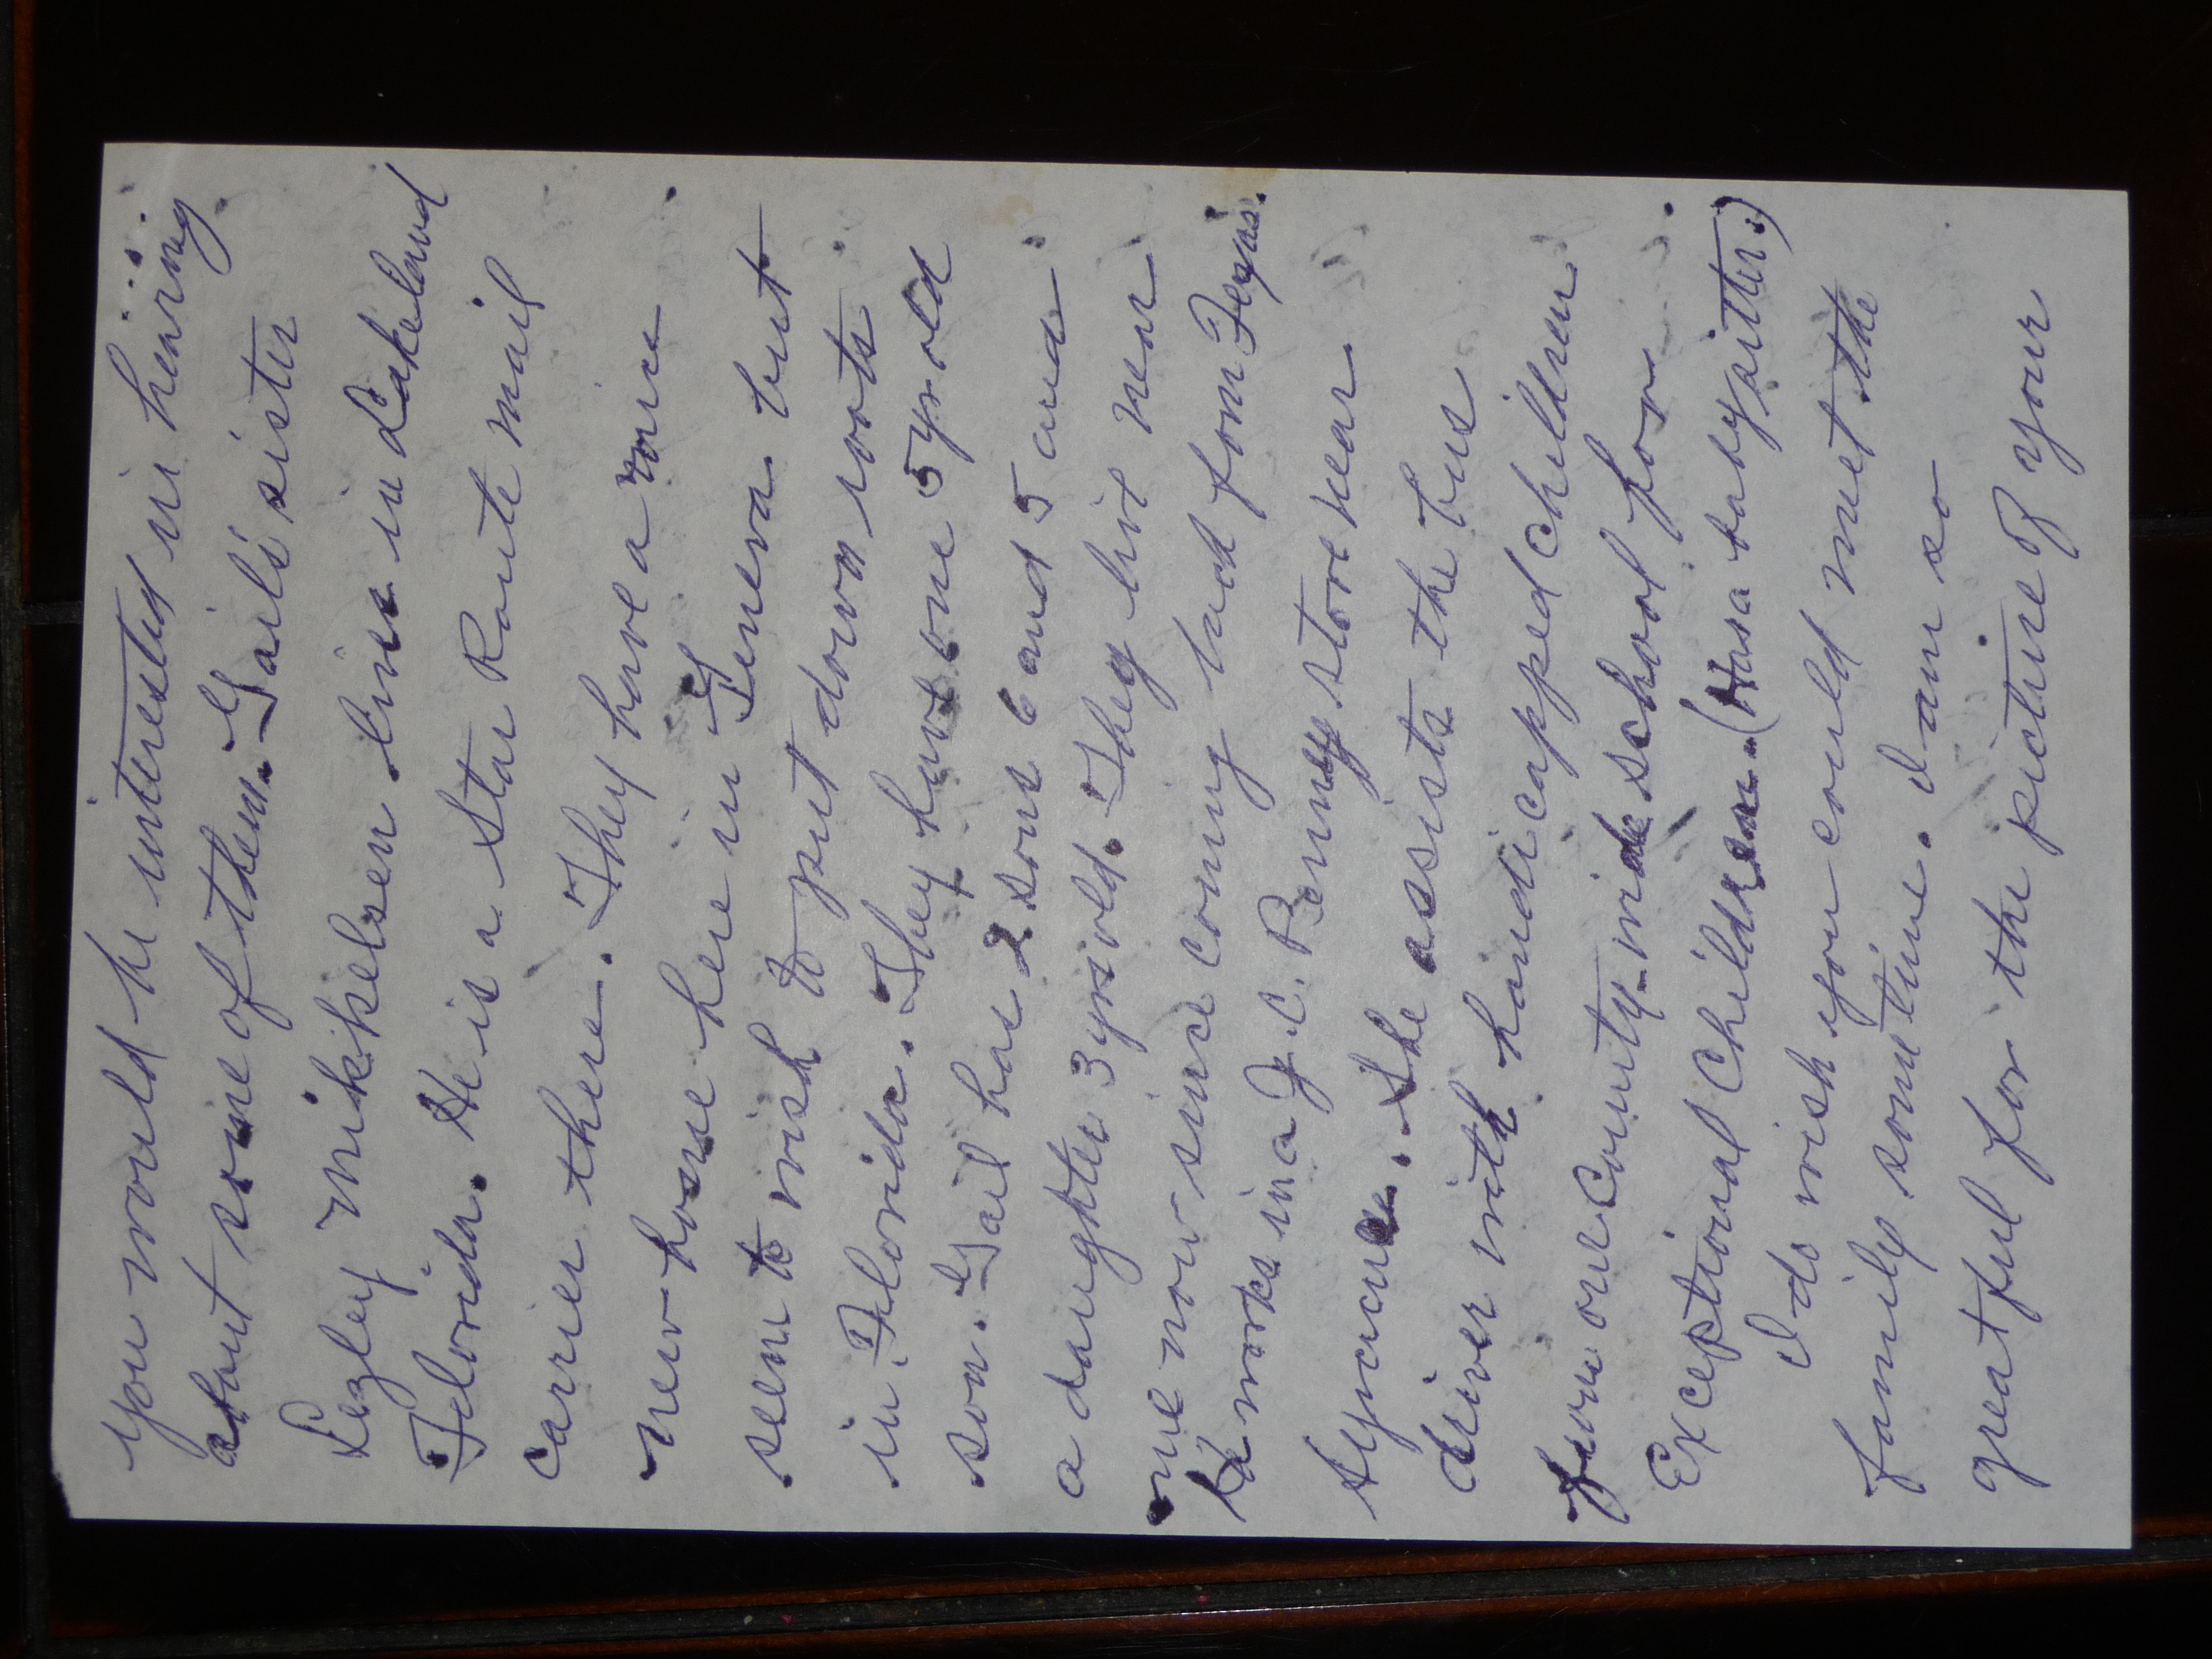 you would be interested in hearing
about some of them. Gail's sister
Lezley Mikkelsen lives in Lakeland
Florida. He is a Star Route mail
carrier there. They have a nice
new home here in Geneva but
seem to wish to put down roots
in Florida. They have one 5 yr old
son. Gail has 2 sons 6 and 5 and
a daughter 3 yrs old. They live near
me now since coming back from Texas.
He works in a J.C. Penney store near
Sycamore. She assists the bus
driver with handicapped children
from our county-wide school for
Exceptional Children. (Has a babysitter.)
I do wish you could meet the
family sometime. I am so
greatful for the picture of your